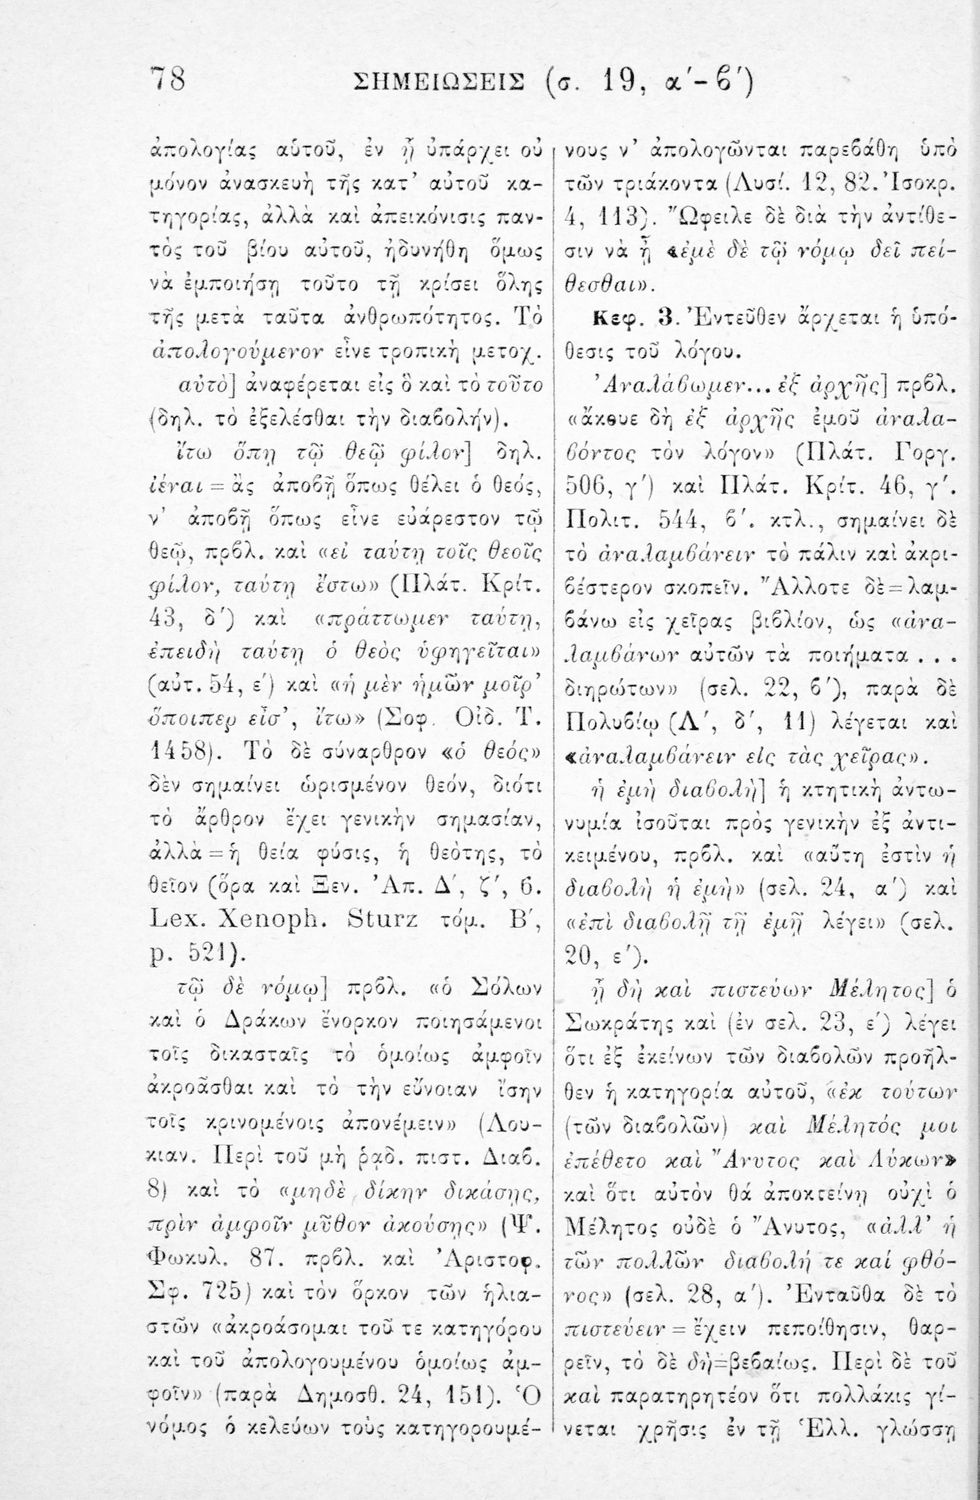 78 ΣΗΜΕΙΩΣΕΙΣ (σ. 19, α΄-β΄)
ἀπολογίας αὑτοῦ, ἐν ᾗ ὑπάρχει οὐ
μόνον ἀνασκευὴ τῆς κατ' αὐτοῦ κα-
τηγορίας, ἀλλὰ καὶ ἀπεικόνισις παν-
τὸς τοῦ βίου αὐτοῦ, ἠδυνήθη ὅμως
νὰ ἐμποιήσῃ τοῦτο τῇ κρίσει ὅλης
τῆς μετὰ ταῦτα ἀνθρωπότητος. Τὸ
ἀπολογούμενον εἶνε τροπικὴ μετοχ.
αὐτὸ] ἀναφέρεται εἰς ὃ καὶ τὸ τοῦτο
(δηλ. τὸ ἐξελέσθαι τὴν διαβολήν).
ἴτω ὅπῃ τῷ θεῷ φίλον] δηλ.
ἰέναι = ἂς ἀποβῇ ὅπως θέλει ὁ θεός,
ν' ἀποβῇ ὅπως εἶνε εὐάρεστον τῷ
θεῷ, πρβλ. καὶ «εἰ ταύτῃ τοῖς θεοῖς
φίλον, ταύτῃ ἔστω» (Πλάτ. Κρίτ.
43, δ΄) καὶ «πράττωμεν ταύτῃ,
ἐπειδὴ ταύτῃ ὁ θεὸς ὑφηγεῖται»
(αὐτ. 54, ε΄) καὶ «ἡ μὲν ἡμῶν μοῖρ'
ὅποιπερ εἶσ', ἴτω» (Σοφ. Οἰδ. Τ.
1458). Τὸ δὲ σύναρθρον «ὁ θεός»
δὲν σημαίνει ὡρισμένον θεόν, διότι
τὸ ἄρθρον ἔχει γενικὴν σημασίαν,
ἀλλὰ = ἡ θεία φύσις, ἡ θεότης, τὸ
θεῖον (ὅρα καὶ Ξεν. Ἀπ. Δ΄, ζ΄, 6.
Lex. Xenoph. Sturz τόμ. Β΄,
p. 521).
τῷ δὲ νόμῳ] πρβλ. «ὁ Σόλων
καὶ ὁ Δράκων ἔνορκον ποιησάμενοι
τοῖς δικασταῖς τὸ ὁμοίως ἀμφοῖν
ἀκροᾶσθαι καὶ τὸ τὴν εὔνοιαν ἴσην
τοῖς κρινομένοις ἀπονέμειν» (Λου-
κιαν. Περὶ τοῦ μὴ ῥᾳδ. πιστ. Διαβ.
8) καὶ τὸ «μηδὲ δίκην δικάσῃς,
πρὶν ἀμφοῖν μῦθον ἀκούσῃς» (Ψ.
Φωκυλ. 87. πρβλ. καὶ Ἀριστοφ.
Σφ. 725) καὶ τὸν ὅρκον τῶν ἡλια-
στῶν «ἀκροάσομαι τοῦ τε κατηγόρου
καὶ τοῦ ἀπολογουμένου ὁμοίως ἀμ-
φοῖν» (παρὰ Δημοσθ. 24, 151). Ὁ
νόμος ὁ κελεύων τοὺς κατηγορουμέ-
νους ν' ἀπολογῶνται παρεβάθη ὑπὸ
τῶν τριάκοντα (Λυσί. 12, 82. Ἰσοκρ.
4, 113). Ὤφειλε δὲ διὰ τὴν ἀντίθε-
σιν νὰ ᾖ «ἐμὲ δὲ τῷ νόμῳ δεῖ πεί-
θεσθαι».
Κεφ. 3. Ἐντεῦθεν ἄρχεται ἡ ὑπό-
θεσις τοῦ λόγου.
Ἀναλάβωμεν... ἐξ ἀρχῆς] πρβλ.
«ἄκουε δὴ ἐξ ἀρχῆς ἐμοῦ ἀναλα-
βόντος τὸν λόγον» (Πλάτ. Γοργ.
506, γ΄) καὶ Πλάτ. Κρίτ. 46, γ΄.
Πολιτ. 544, β΄. κτλ., σημαίνει δὲ
τὸ ἀναλαμβάνειν τὸ πάλιν καὶ ἀκρι-
βέστερον σκοπεῖν. Ἄλλοτε δὲ = λαμ-
βάνω εἰς χεῖρας βιβλίον, ὡς «ἀνα-
λαμβάνων αὐτῶν τὰ ποιήματα . . .
διηρώτων» (σελ. 22, β΄), παρὰ δὲ
Πολυβίῳ (Λ΄, δ΄, 11) λέγεται καὶ
«ἀναλαμβάνειν εἰς τὰς χεῖρας».
ἡ ἐμὴ διαβολὴ] ἡ κτητικὴ ἀντω-
νυμία ἰσοῦται πρὸς γενικὴν ἐξ ἀντι-
κειμένου, πρβλ. καὶ «αὕτη ἐστὶν ἡ
διαβολὴ ἡ ἐμὴ» (σελ. 24, α΄) καὶ
«ἐπὶ διαβολῇ τῇ ἐμῇ λέγει» (σελ.
20, ε΄).
ᾗ δὴ καὶ πιστεύων Μέλητος] ὁ
Σωκράτης καὶ (ἐν σελ. 23, ε΄) λέγει
ὅτι ἐξ ἐκείνων τῶν διαβολῶν προῆλ-
θεν ἡ κατηγορία αὐτοῦ, «ἐκ τούτων
(τῶν διαβολῶν) καὶ Μέλητός μοι
ἐπέθετο καὶ Ἄνυτος καὶ Λύκων»
καὶ ὅτι αὐτὸν θὰ ἀποκτείνῃ οὐχὶ ὁ
Μέλητος οὐδὲ ὁ Ἄνυτος, «ἀλλ' ἡ
τῶν πολλῶν διαβολή τε καί φθό-
νος» (σελ. 28, α΄). Ἐνταῦθα δὲ τὸ
πιστεύειν = ἔχειν πεποίθησιν, θαρ-
ρεῖν, τὸ δὲ δὴ=βεβαίως. Περὶ δὲ τοῦ
καὶ παρατηρητέον ὅτι πολλάκις γί-
νεται χρῆσις ἐν τῇ Ἑλλ. γλώσσῃ